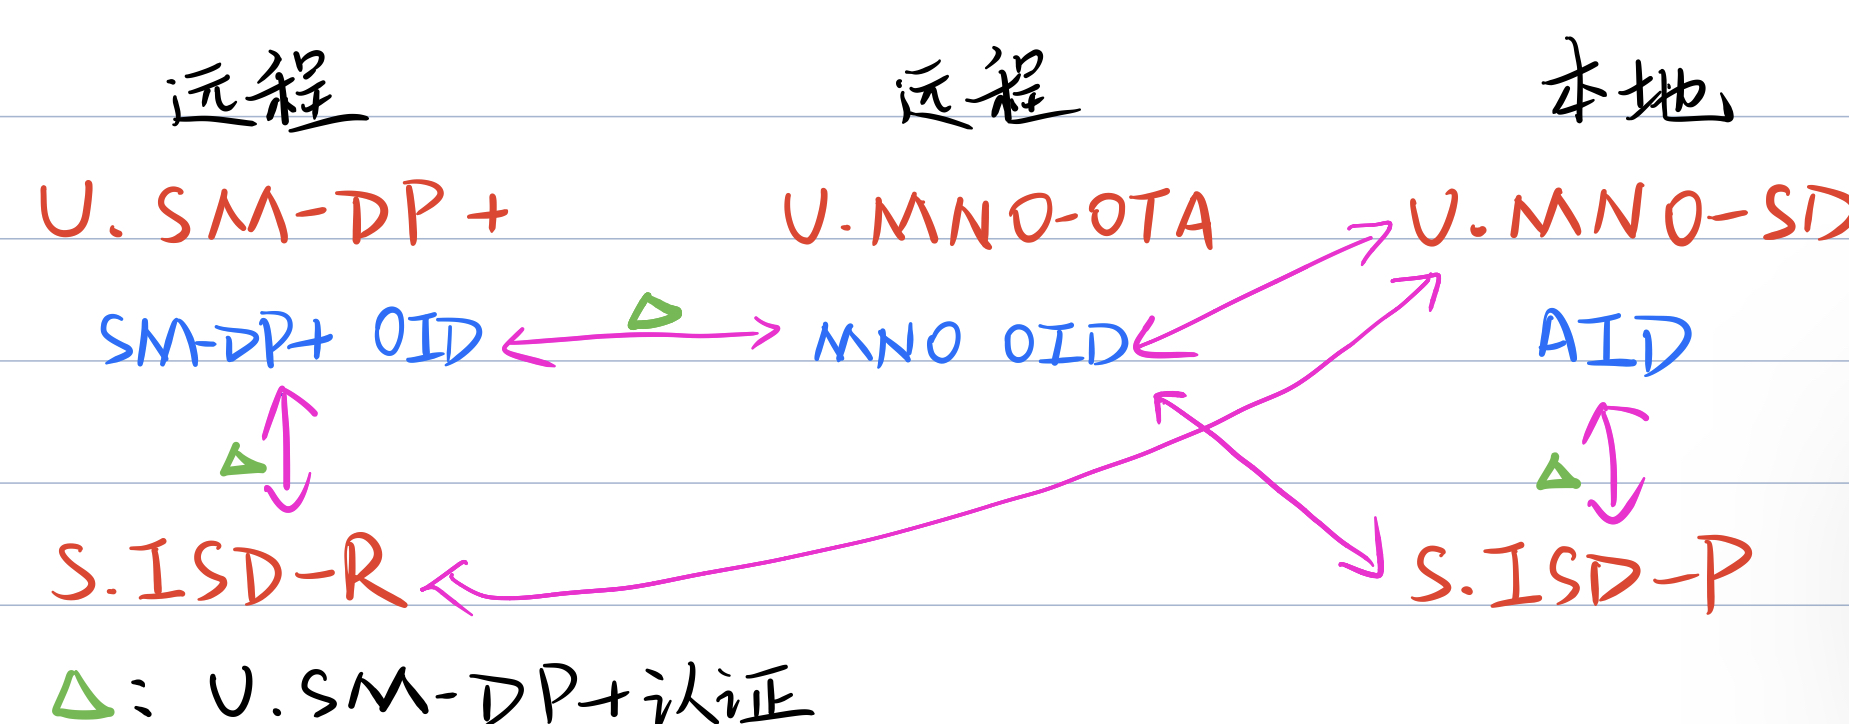 远程 远程 本地
U.SM-DP+ U.MNO-OTA U.MNO-SD
SM-DP+ OID △ MNO OID AID
△ △
S.ISD-R S.ISD-P
△: U.SM-DP+认证